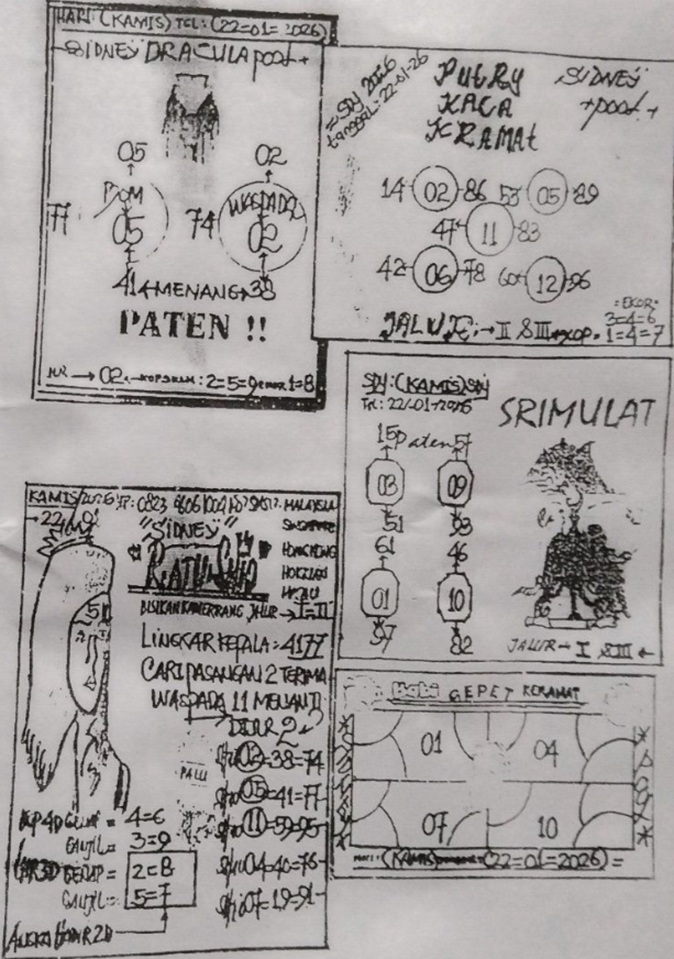 HARI (KAMIS) TGL: (22=01=2026)
SIDNEY DRACULA pool +
05 02
BOM WASPADAI
77 05 74 02
41 ← MENANG → 38
PATEN !!
→ 02 ← KOP : 2=5=9 EKOR 1=8
= SDY 2026
tanggal: 22-01-26
PUTRY
KACA
KRAMAt
SIDNEY
+pool+
14 02 86 53 05 89
47 11 83
42 06 78 60 12 96
=EKOR=
3=4=6
JALUR :→ II & III → KOP. 1=4=7
SDY: (KAMIS) SDY
TGL: 22/-01-/2026
SRIMULAT
15 Paten 57
03 09
51 93
61 46
01 10
37 82
JALUR → I & III ←
KAMIS
MALAYSIA
→ 22
SINGAPORE
"SIDNEY"
HONGKONG
RATU
BISIKAN JALUR → I=II
LINGKAR KEPALA: 4177
CARI PASANGAN 2 TERIMA
WASPADA 11 MENANTI
DIJALUR 2
03=38=74
PALU
05=41=77
11=59=95
04=40=76
07=19=91
KOP 4D GENAP = 4=6
GANJIL = 3=9
GENAP = 2=8
GANJIL = 5=7
ANGKA 2D
GEPET KERAMAT
01 04
07 10
(KAMIS) (22=01=2026) =